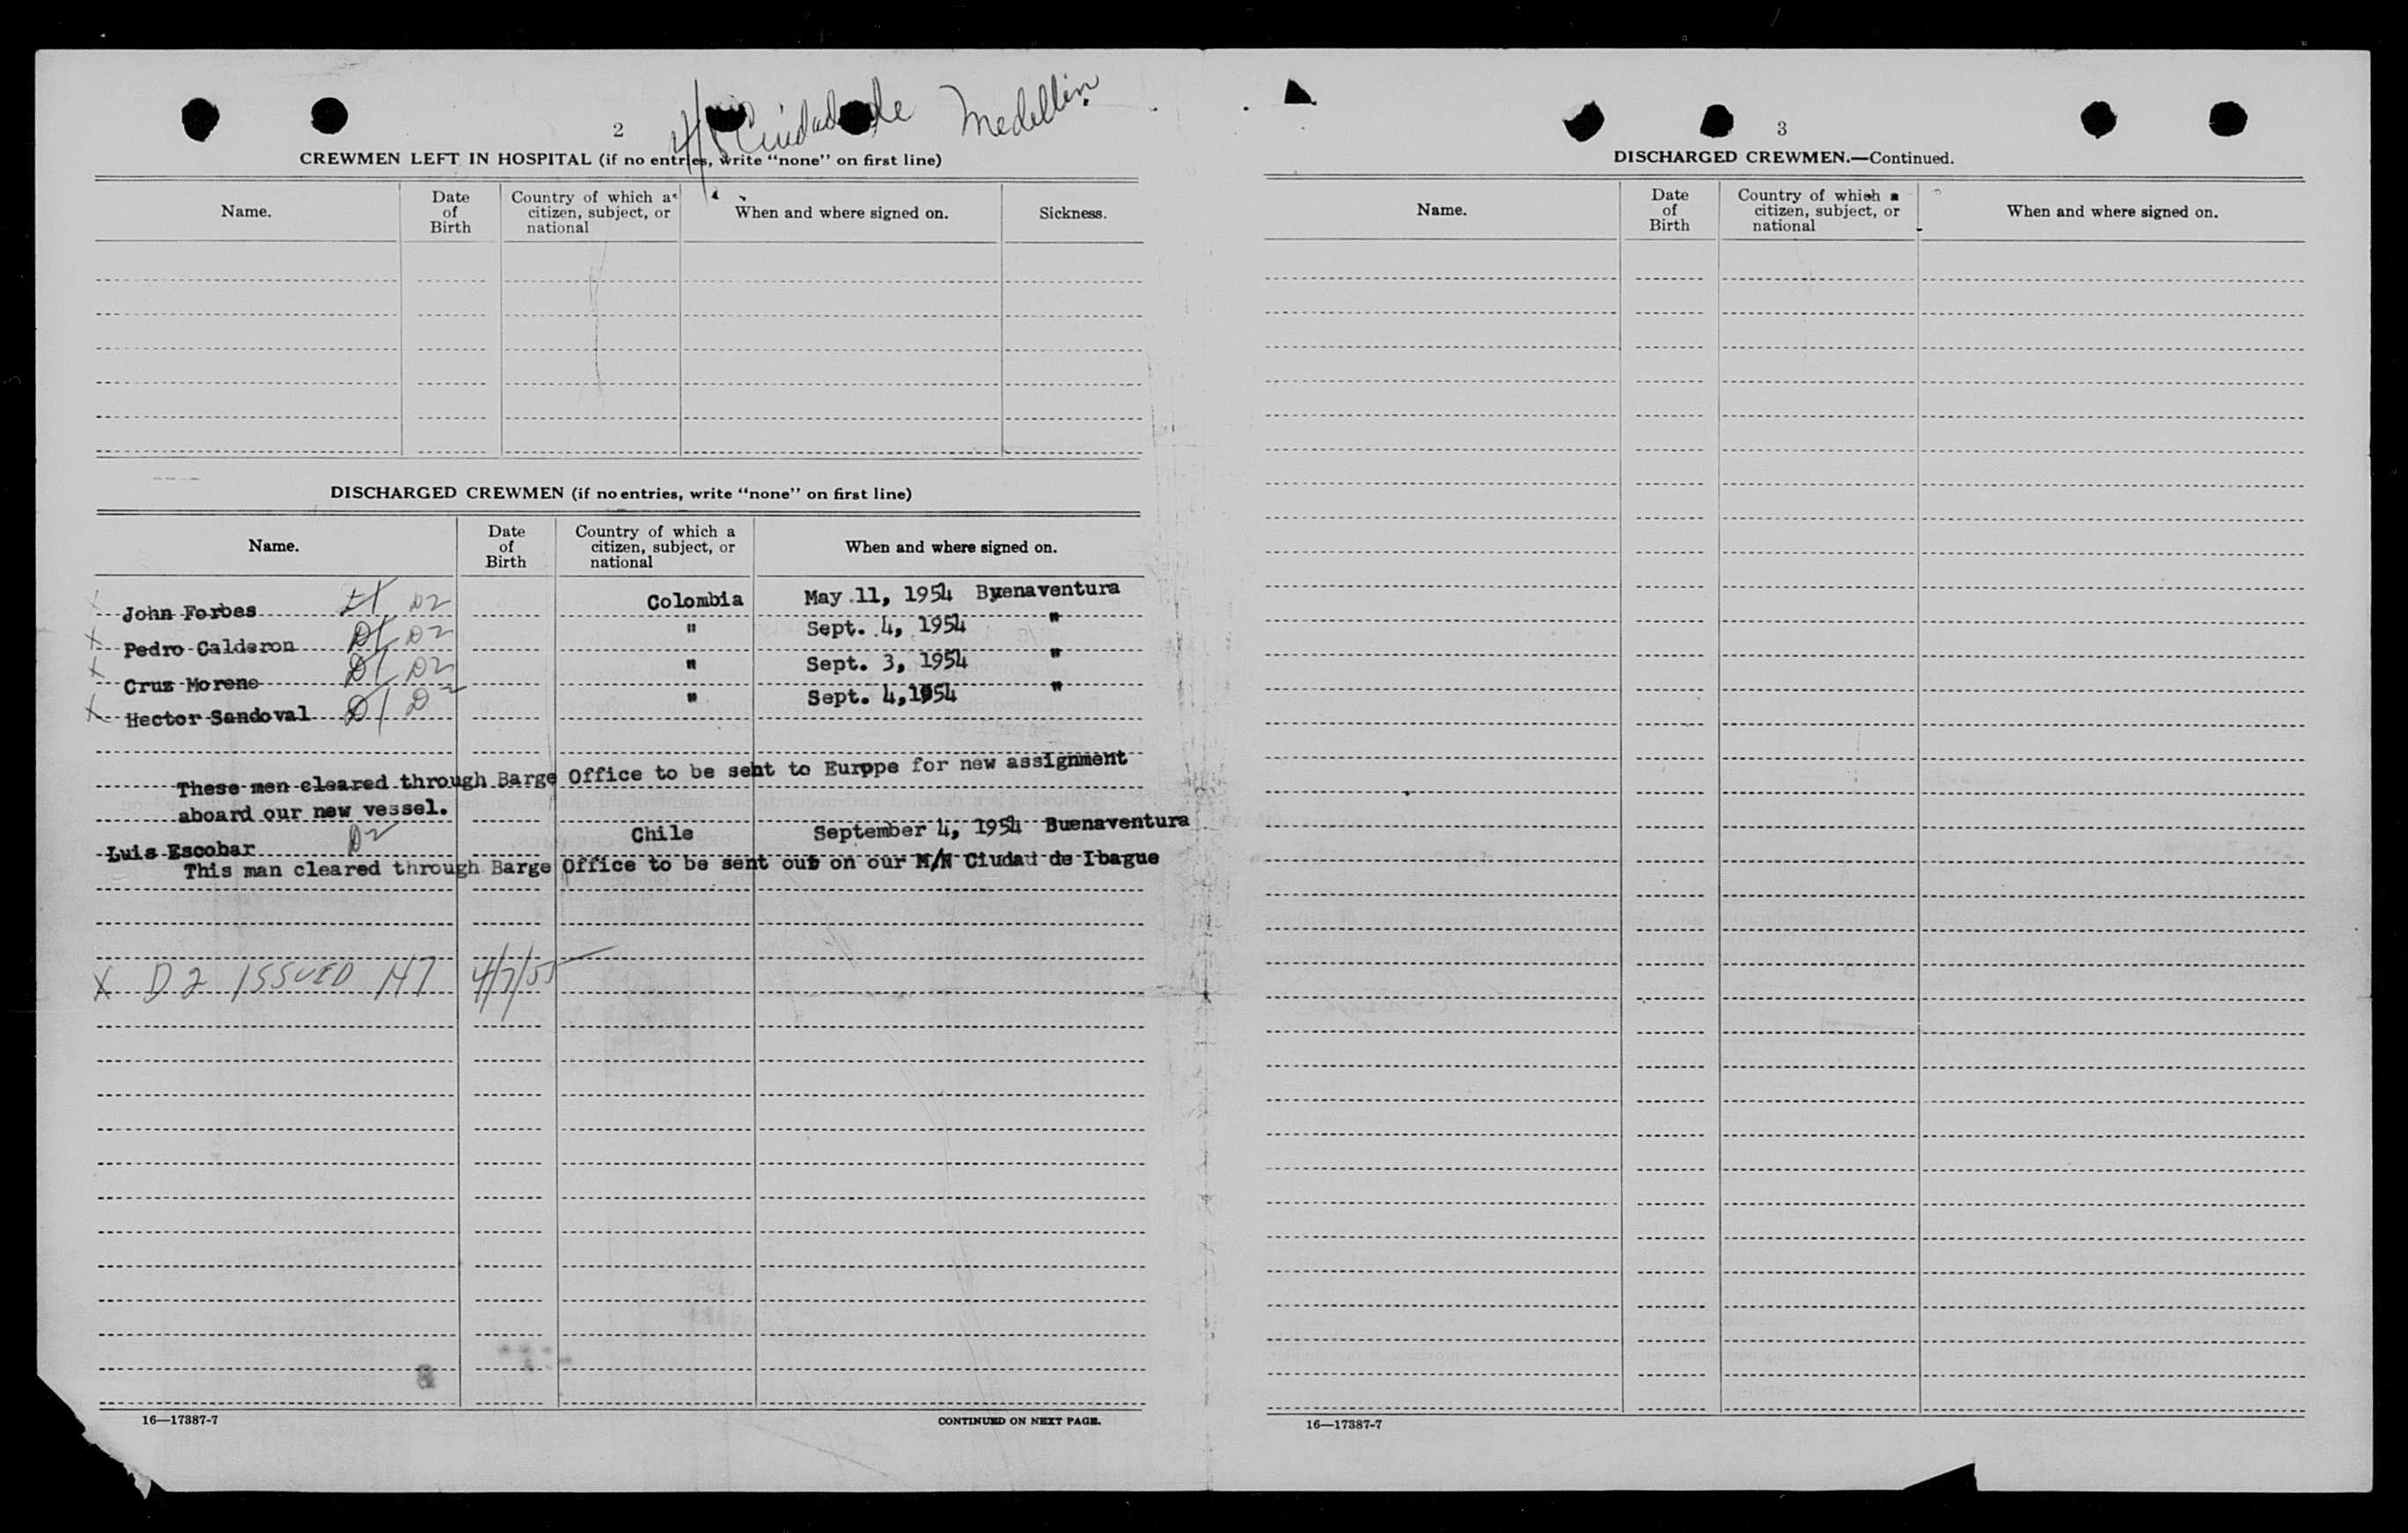 2
Ciudad de Medellin
CREWMEN LEFT IN HOSPITAL (if no entries, write “none” on first line)
Name. Date of Birth Country of which a citizen, subject, or national When and where signed on. Sickness.
DISCHARGED CREWMEN (if no entries, write “none” on first line)
Name. Date of Birth Country of which a citizen, subject, or national When and where signed on.
X John Forbes D1 D2 Colombia May 11, 1954 Buenaventura
X Pedro Calderon D1 D2 " Sept. 4, 1954 "
X Cruz Moreno D1 D2 " Sept. 3, 1954 "
X Hector Sandoval D1 D2 " Sept. 4,1954 "
These men cleared through Barge Office to be sent to Europe for new assignment
aboard our new vessel.
Luis Escobar D2 Chile September 4, 1954 Buenaventura
This man cleared through Barge Office to be sent out on our M/N Ciudad de Ibague
X D2 ISSUED 147 4/7/55
16—17387-7 CONTINUED ON NEXT PAGE.
3
DISCHARGED CREWMEN.—Continued.
Name. Date of Birth Country of which a citizen, subject, or national When and where signed on.
16—17387-7